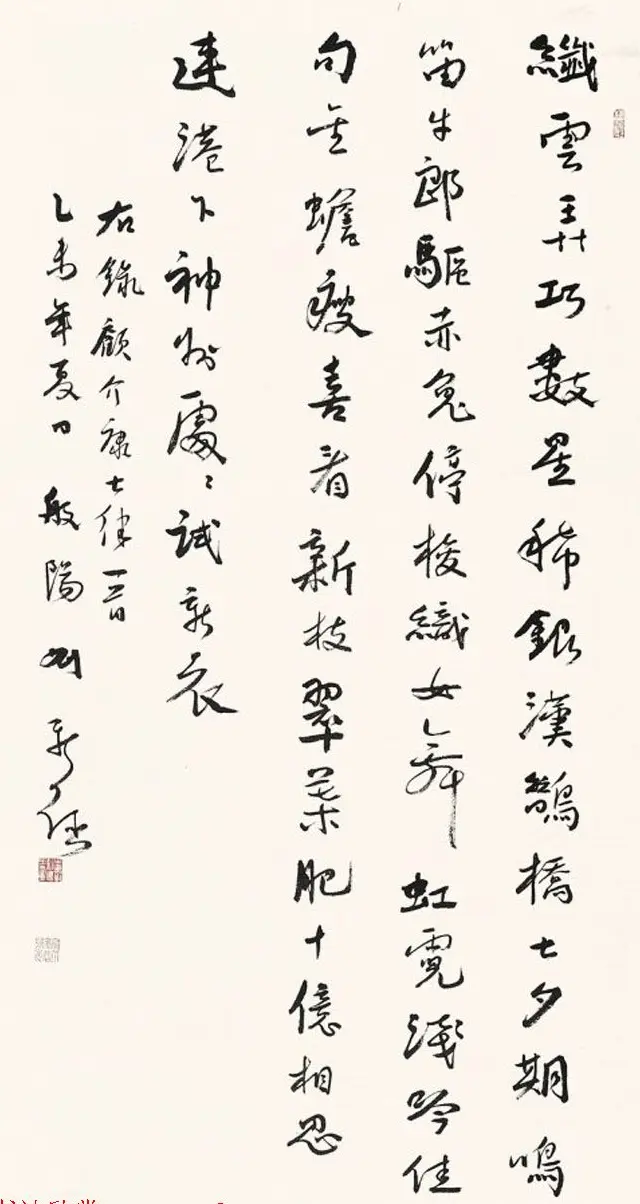 纖雲弄巧數星稀銀漢鵲橋七夕期鳴
笛牛郎驅赤兔停梭織女舞虹霓淺吟佳
句蟾瘦喜看新枝翠葉肥十億相思
連港下神州處〻試新衣
右錄顧介康七律一首
乙未年夏日 般陽